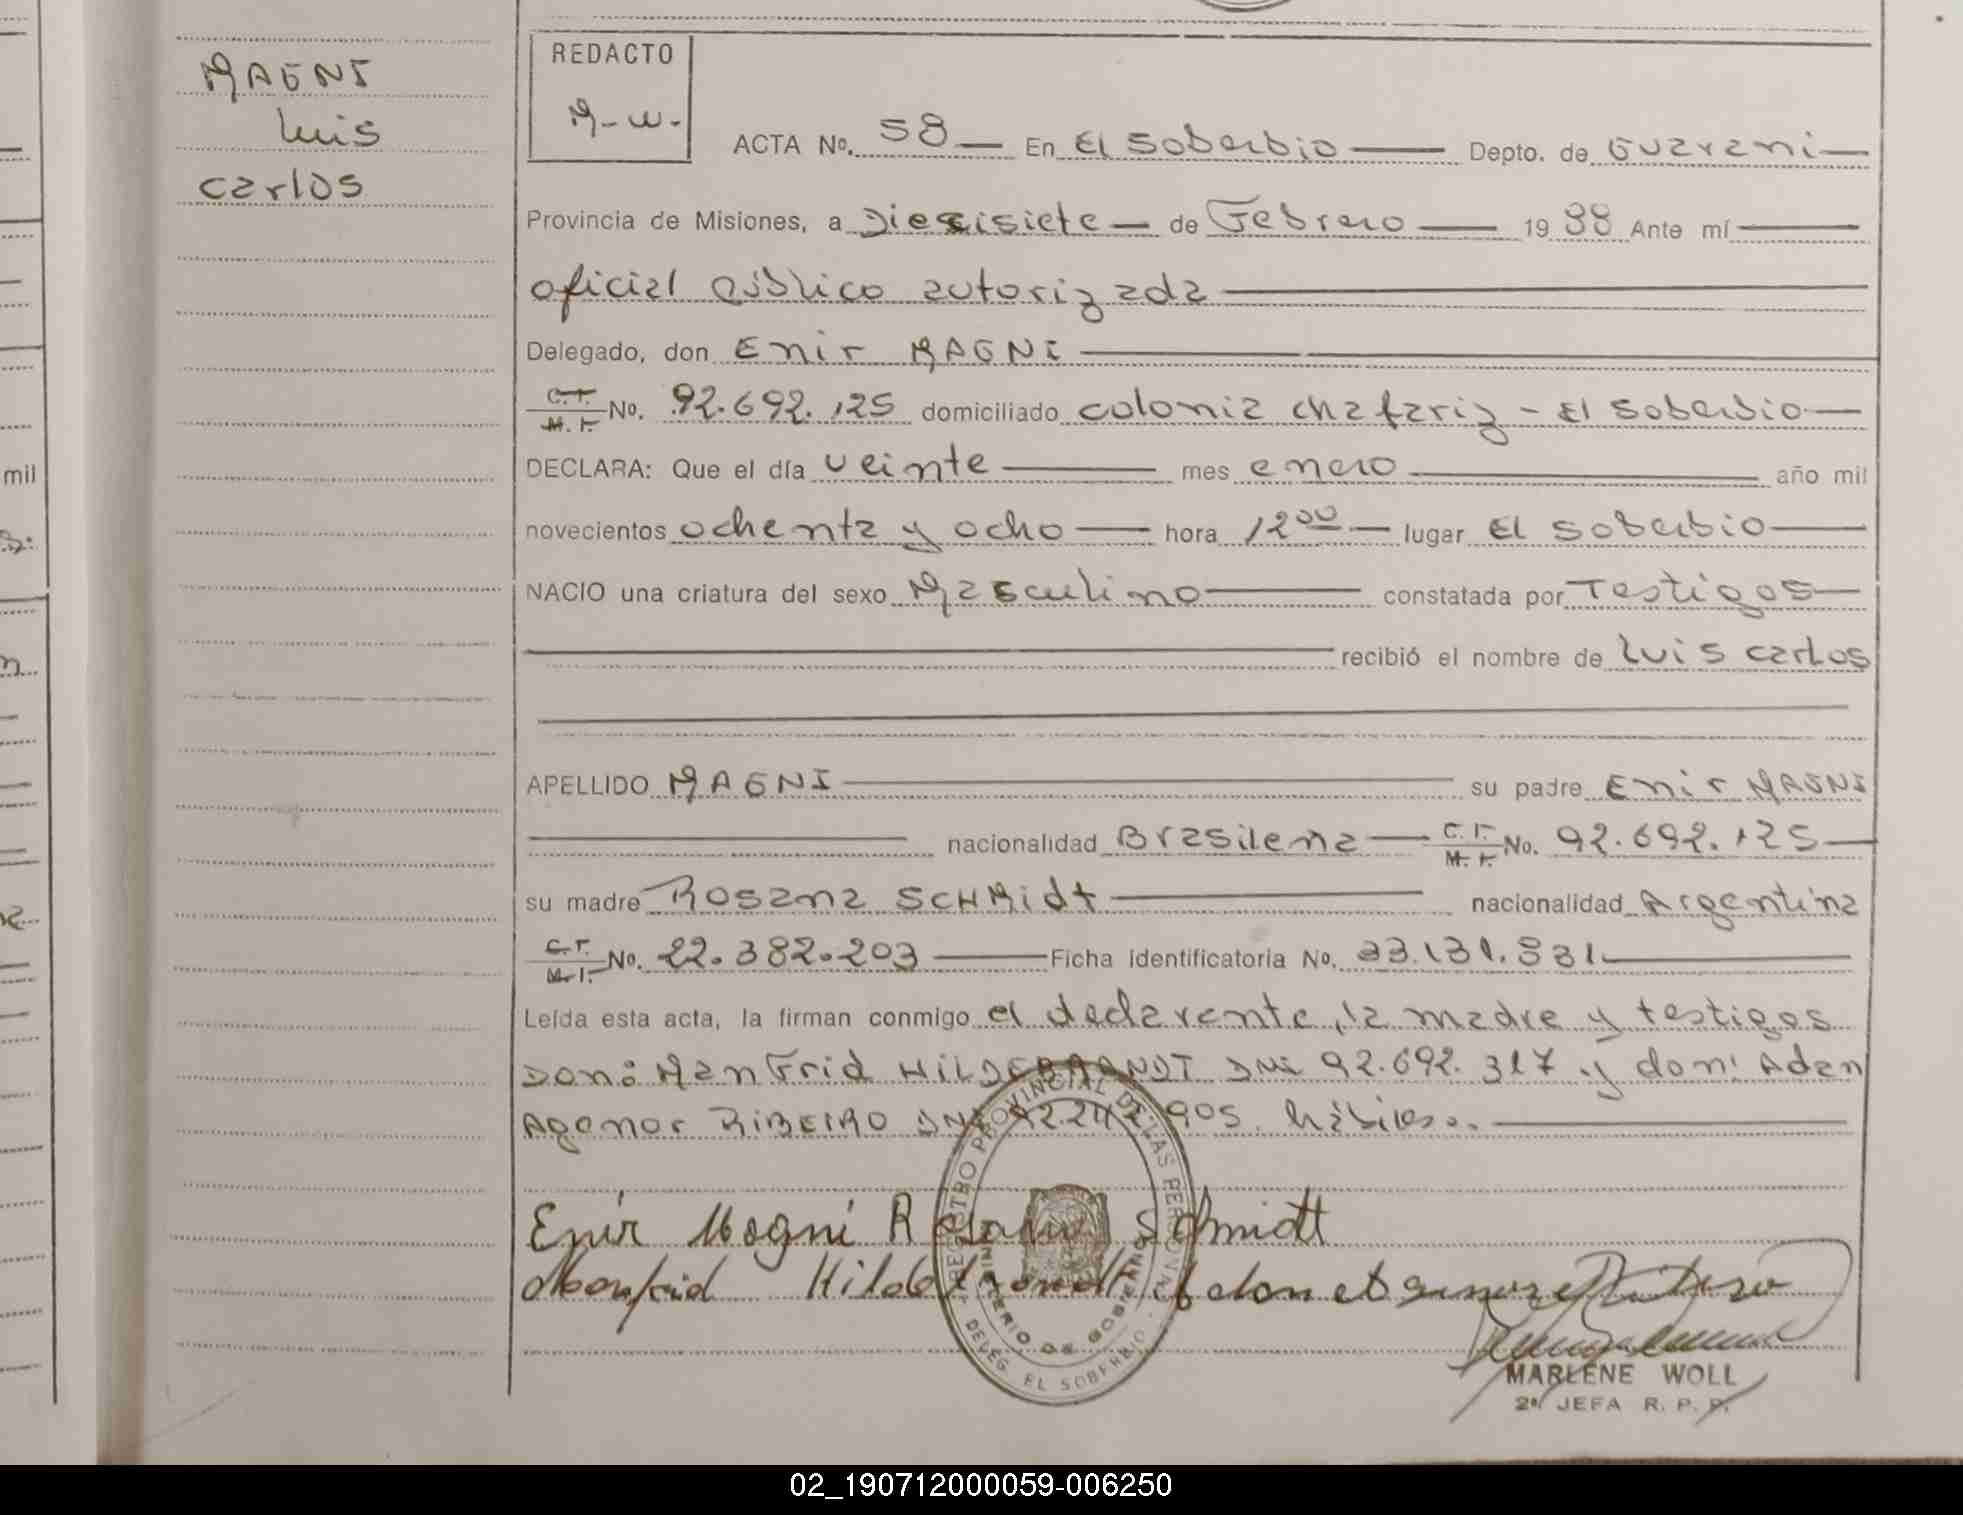 MAGNI
Luis
Carlos
REDACTO
M-W-
ACTA No. 58 En El Soberbio Depto. de Guarani
Provincia de Misiones, a Diecisiete de Febrero 1988 Ante mí
oficial público autorizada
Delegado, don Enir MAGNI
C.I. M.I. No. 92.692.125 domiciliado colonia chafariz - El Soberbio
DECLARA: Que el día veinte mes enero año mil
novecientos ochenta y ocho hora 12 00 lugar El Soberbio
NACIO una criatura del sexo Masculino constatada por Testigos
recibió el nombre de Luis Carlos
APELLIDO MAGNI su padre Enir MAGNI
nacionalidad Brasilena C.I. M.I. No. 92.692.125
su madre Rosana SCHMidt nacionalidad Argentina
C.I. M.I. No. 22.382.203 Ficha identificatoria No. 33.131.831
Leída esta acta, la firman conmigo el declarante, la madre y testigos
Don: Manfrid HILDEBRANDT DNI 92.692.317 y don: Adan
Agenor RIBEIRO DNI 92.242.905. hábiles.
Enir Magni Rosana Schmidt
Manfrid Hildebrandt
REGISTRO PROVINCIAL DE LAS PERSONAS
MINISTERIO DE GOBIERNO
DELEG. EL SOBERBIO
MARLENE WOLL
2a JEFA R. P. P.
mil
02_190712000059-006250